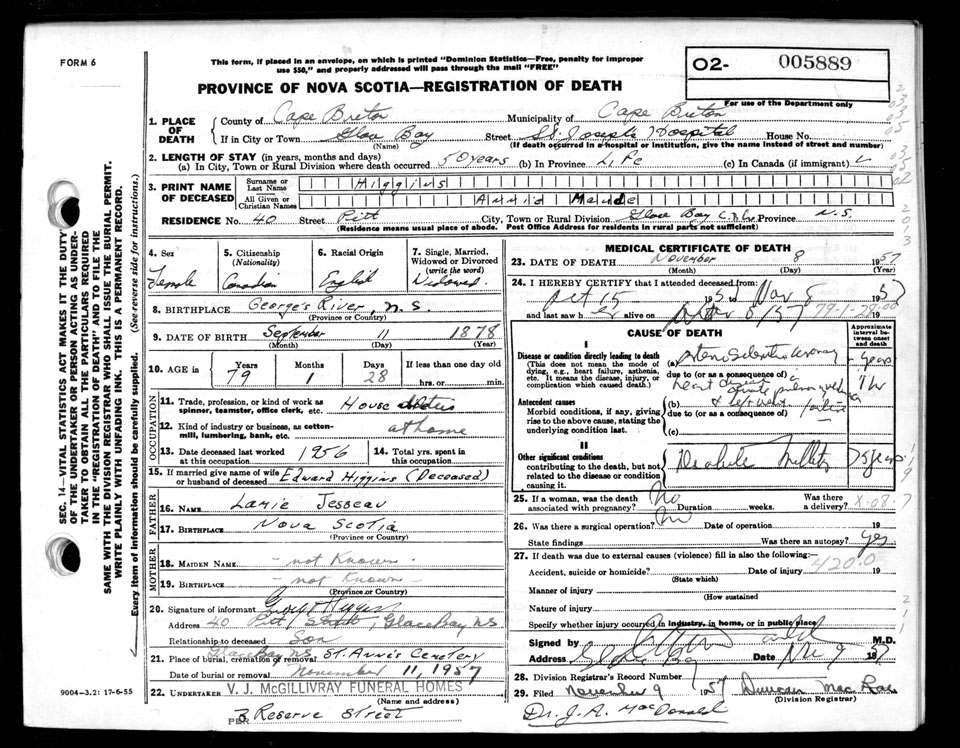 FORM 6
This form, if placed in an envelope, on which is printed "Dominion Statistics—Free, penalty for improper
use $50," and properly addressed will pass through the mail "FREE"
O2- 005889
For use of the Department only
PROVINCE OF NOVA SCOTIA—REGISTRATION OF DEATH
1. PLACE OF DEATH
County of Cape Breton Municipality of Cape Breton
If in City or Town Glace Bay Street St. Joseph's Hospital House No.
(Name) (If death occurred in a hospital or institution, give the name instead of street and number)
2. LENGTH OF STAY (in years, months and days)
(a) In City, Town or Rural Division where death occurred 50 years (b) In Province Life (c) In Canada (if immigrant)
3. PRINT NAME OF DECEASED
Surname or Last Name Higgins
All Given or Christian Names Annie Maude
RESIDENCE No. 40 Street Pitt City, Town or Rural Division Glace Bay C.B. Co. Province N.S.
(Residence means usual place of abode. Post Office Address for residents in rural parts not sufficient)
4. Sex Female
5. Citizenship (Nationality) Canadian
6. Racial Origin English
7. Single, Married, Widowed or Divorced (write the word) Widowed
8. BIRTHPLACE George's River, N.S.
(Province or Country)
9. DATE OF BIRTH September 11 1878
(Month) (Day) (Year)
10. AGE Years 79 Months 1 Days 28 If less than one day old hrs. or min.
OCCUPATION
11. Trade, profession, or kind of work as spinner, teamster, office clerk, etc. House
12. Kind of industry or business, as cotton-mill, lumbering, bank, etc. at home
13. Date deceased last worked at this occupation 1956
14. Total yrs. spent in this occupation
15. If married give name of wife or husband of deceased Edward Higgins (Deceased)
FATHER
16. NAME Lamie Jesseau
17. BIRTHPLACE Nova Scotia
(Province or Country)
MOTHER
18. MAIDEN NAME - not Known -
19. BIRTHPLACE - not Known -
(Province or Country)
20. Signature of informant Higgins
Address 40 Pitt Street, Glace Bay NS
Relationship to deceased Son
Glace Bay N.S. St. Anne's Cemetery
21. Place of burial, cremation or removal
Date of burial or removal November 11, 1957
22. UNDERTAKER V. J. McGILLIVRAY FUNERAL HOMES
(Name and address)
PER 3 Reserve Street
9004-3.2: 17-6-55
MEDICAL CERTIFICATE OF DEATH
23. DATE OF DEATH November 8 1957
(Month) (Day) (Year)
24. I HEREBY CERTIFY that I attended deceased from:
Oct 15 195 to Nov 8 1957
and last saw her alive on Nov 8/57 19 79-1-28
CAUSE OF DEATH
Approximate interval between onset and death
I
Disease or condition directly leading to death
(This does not mean the mode of dying, e.g., heart failure, asthenia, etc. It means the disease, injury, or complication which caused death.)
(a) years
due to (or as a consequence of)
heart disease
Antecedent causes
Morbid conditions, if any, giving rise to the above cause, stating the underlying condition last.
(b)
due to (or as a consequence of)
(c)
II
Other significant conditions
contributing to the death, but not related to the disease or condition causing it.
25. If a woman, was the death associated with pregnancy? No Duration weeks. Was there a delivery?
26. Was there a surgical operation? No Date of operation 19
State findings Was there an autopsy? Yes
27. If death was due to external causes (violence) fill in also the following:
Accident, suicide or homicide? Date of injury 19
420.0
(State which)
Manner of injury
(How sustained
Nature of injury
Specify whether injury occurred in industry, in home, or in public place
Signed by M.D.
Address Glace Bay Date Nov 9 1957
28. Division Registrar's Record Number
29. Filed November 9 1957 Duncan MacRae
(Division Registrar)
Dr. J. A. MacDonald
SEC. 14—VITAL STATISTICS ACT MAKES IT THE DUTY
OF THE UNDERTAKER OR PERSON ACTING AS UNDER-
TAKER TO OBTAIN ALL THE PARTICULARS REQUIRED
IN THE "REGISTRATION OF DEATH" AND TO FILE THE
SAME WITH THE DIVISION REGISTRAR WHO SHALL ISSUE THE BURIAL PERMIT.
WRITE PLAINLY WITH UNFADING INK. THIS IS A PERMANENT RECORD.
Every item of information should be carefully supplied. (See reverse side for instructions.)